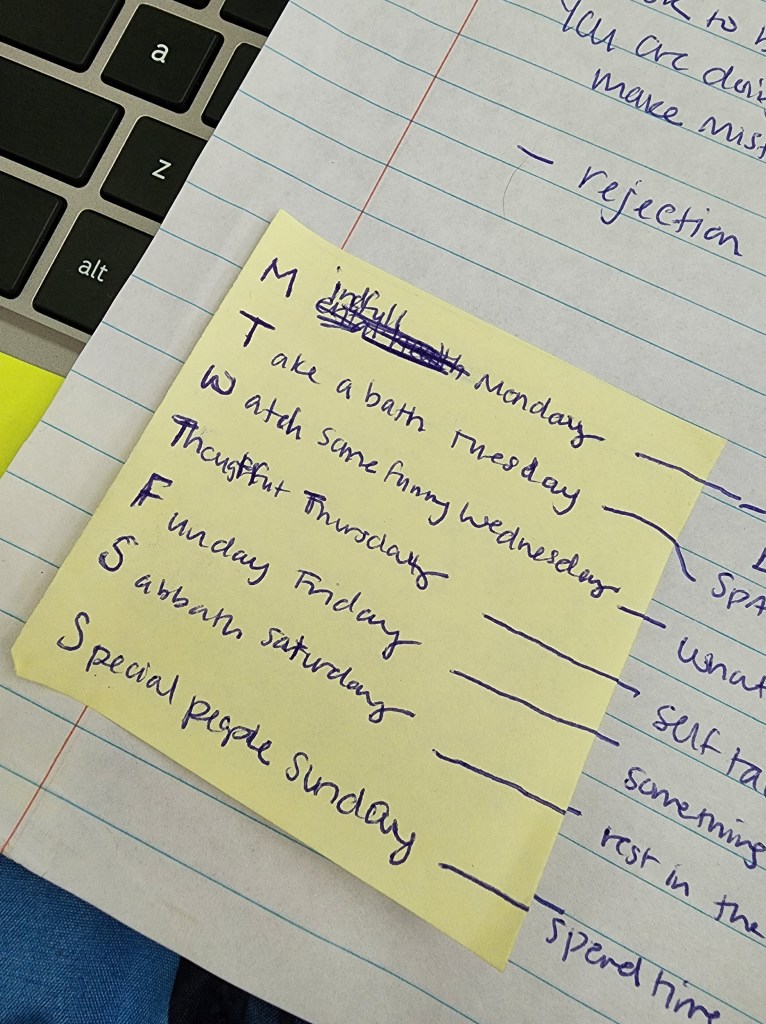 a
z
alt
to
You are doin
make mist
– rejection
Mindfull Monday
Take a bath Tuesday
Watch some funny Wednesday
Thoughtful Thursday
Funday Friday
Sabbath Saturday
Special people Sunday
SpA
what
self ta
something
rest in the
spend time